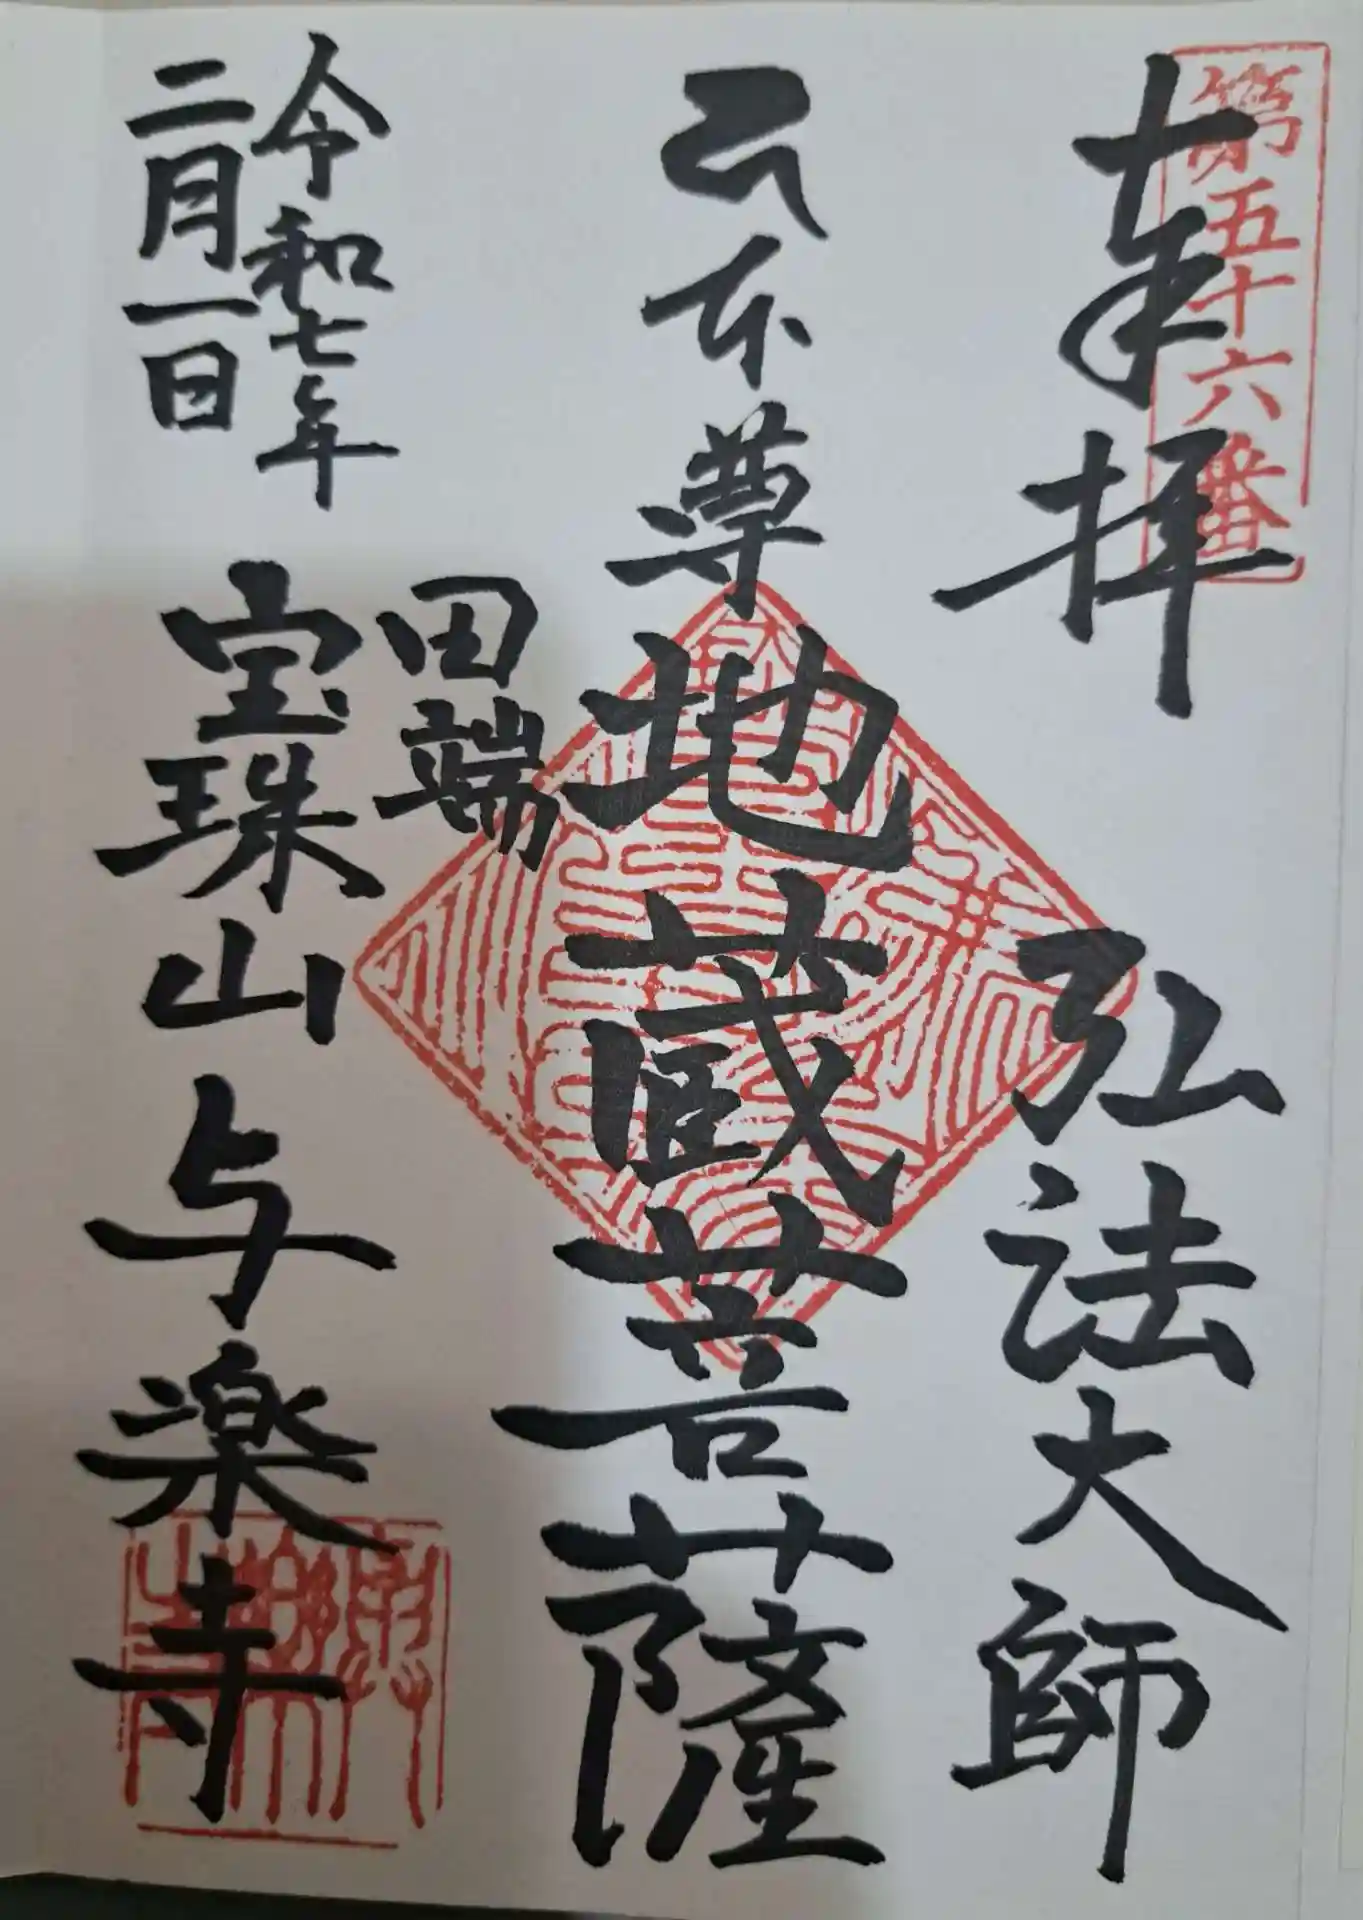 第五十六番
奉拝
弘法大師
本尊
地蔵菩薩
田端
宝珠山 与楽寺
令和七年
二月一日